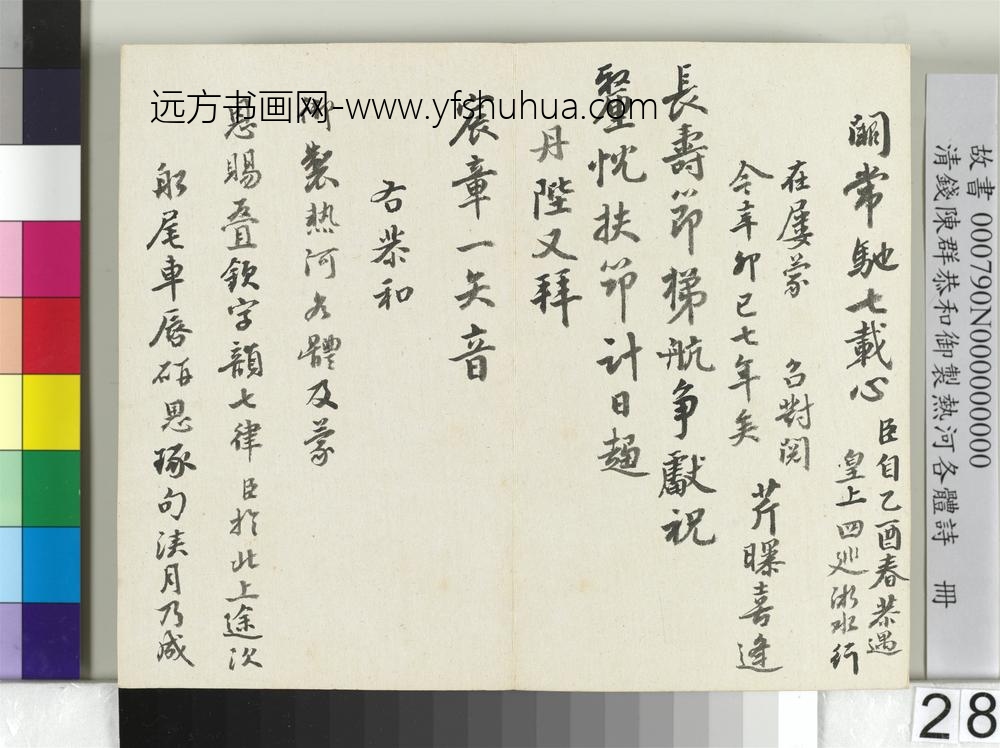 故書 000790N000000000
清錢陳群恭和御製熱河各體詩 冊
闕常馳七載心 臣自乙酉春恭遇
皇上四巡浙水行
在屢蒙 召對閱
今辛卯已七年矣 芹曝喜逢
長壽節梯航爭獻祝
聖忱扶節計日趨
丹陛又拜
宸章一矢音
右恭和
御製熱河各體及蒙
恩賜疊欽字韻七律臣於此上途次
船尾車唇研思琢句浹月乃成
远方书画网-www.yfshuhua.com
28